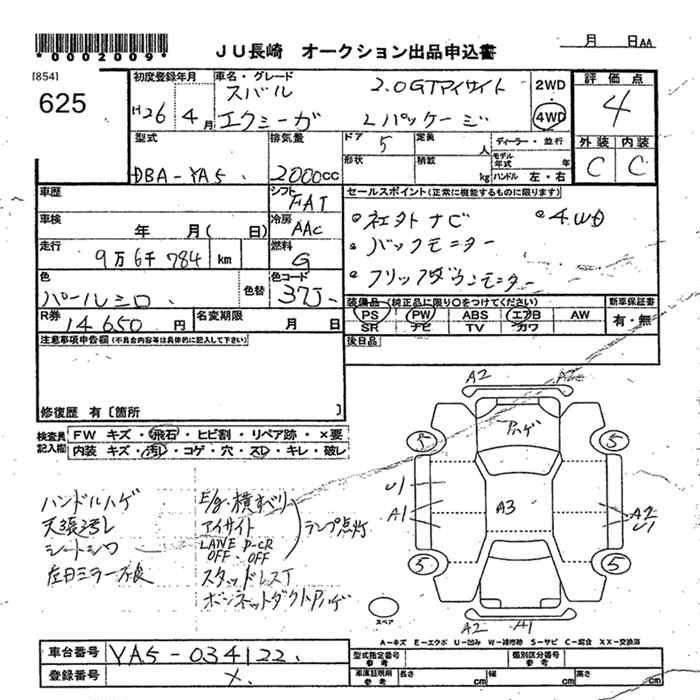 *0002009*
JU長崎 オークション出品申込書
月 日AA
[854]
625
初度登録年月
H26 4月
車名・グレード
スバル 2.0GTアイサイト
エクシーガ Lパッケージ
2WD
4WD
評価点
4
外装 内装
C C
型式
DBA-YA5
排気量
2000cc
ドア
5
定員
人
形状
積載
kg
ディーラー・並行
モデル年式 年
ハンドル 左・右
車歴
シフト
FAT
車検
年 月( 日)
冷房
AAC
走行
9万6千784 km
燃料
G
色
パールシロ
色替
色コード
37J
R券
14650円
名変期限
月 日
セールスポイント(正常に機能するものに限ります)
社外ナビ 4WD
バックモニター
フリップダウンモニター
装備品(純正品に限り○をつけてください)
PS PW ABS エアB AW
SR ナビ TV カワ
新車保証書
有・無
後日品
注意事項申告欄(不具合内容等は具体的に記入して下さい)
修復歴 有[箇所 ]
検査員記入欄
FW キズ・飛石・ヒビ割・リペア跡・×要
内装 キズ・汚レ・コゲ・穴・スレ・キレ・破レ
ハンドルハゲ
天張汚レ
シートシワ
左日ミラー不良
E/g.横すべり
アイサイト
LANE P-CR
OFF・OFF
ランプ点灯
スタッドレス
ボンネットダクトハゲ
A2 A2
5 5
ハゲ
U1
A1
A3
A2
U1
5 5
A2 A1
スペア
A-キズ E-エクボ U-凹み W-補修跡 S-サビ C-腐食 XX-交換済
車台番号 YA5-034122
登録番号 ×
型式指定番号 参考
類別区分番号 参考
車庫証明用 参考
長さ cm 幅 cm 高さ cm